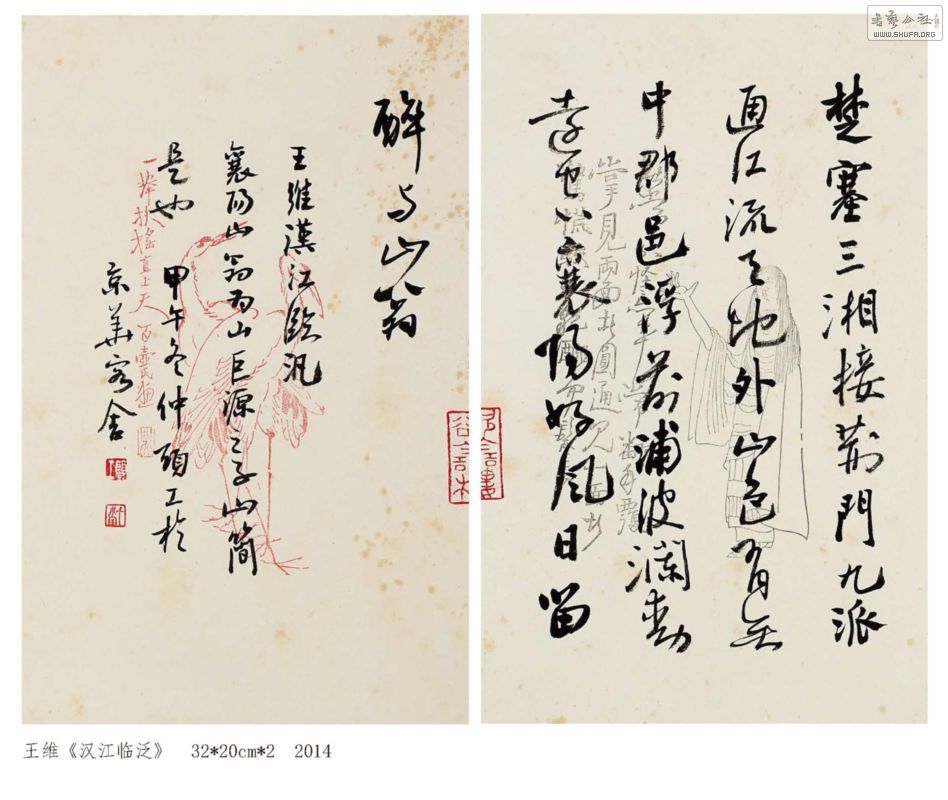 書藝公社
WWW.SHUFA.ORG
楚塞三湘接荊門九派
通江流天地外山色有無
中郡邑浮前浦波瀾動
遠空襄陽好風日留
醉与山翁
王維漢江臨汎
襄陽山翁為山巨源之子山簡
是也 甲午冬仲 於
京華寓舍
一舉扶搖直上天
王维《汉江临泛》 32*20cm*2 2014